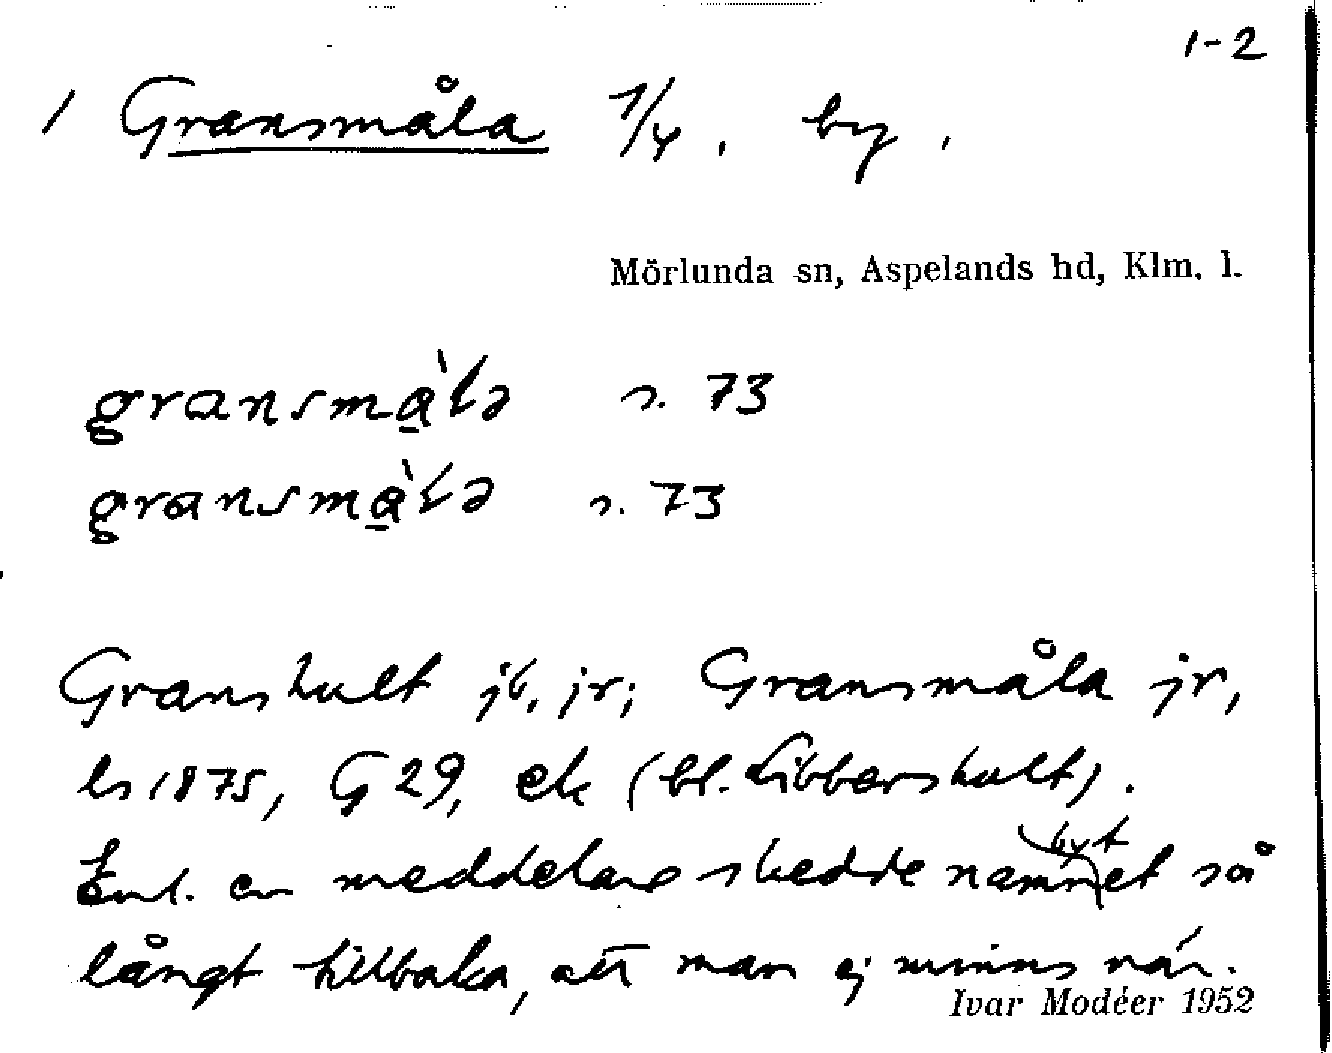 1-2
/ Gransmåla 1/4, by,
Mörlunda sn, Aspelands hd, Klm. l.
gransmą̀lə s. 73
gransmą̀lə s. 73
Granshult jb, jr; Gransmåla jr,
ls 1875, G 29, ek (bl. Libbershult).
Enl. en meddelare skedde namnbytet så
långt tillbaka, att man ej minns när.
Ivar Modéer 1952